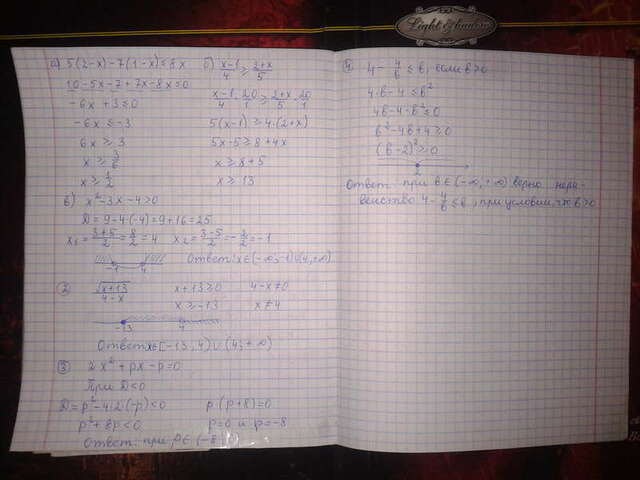 Light & shadow
а) 5(2-x)-7(1-x)≤8x
10-5x-7+7x-8x≤0
-6x+3≤0
-6x≤-3
6x≥3
x≥3/6
x≥1/2
б) (x-1)/4 ≥ (2+x)/5
(x-1)/4 · 20/1 ≥ (2+x)/5 · 20/1
5(x-1)≥4·(2+x)
5x-5≥8+4x
x≥8+5
x≥13
в) x²-3x-4>0
D=9-4(-4)=9+16=25
x₁=(3+5)/2=8/2=4 x₂=(3-5)/2=-2/2=-1
-1 4 Ответ: x∈(-∞;-1)∪(4;+∞)
② √(x+13)/(4-x) x+13≥0 4-x≠0
x≥-13 x≠4
-13 4
Ответ: x∈[-13;4)∪(4;+∞)
③ 2x²+px-p=0
При D<0
D=p²-4·2·(-p)<0 p(p+8)=0
p²+8p<0 p=0 и p=-8
Ответ: при p∈(-8
④ 4-4/b≤b, если b>0
4·b-4≤b²
4b-4-b²≤0
b²-4b+4≥0
(b-2)²≥0
2
Ответ: при b∈(-∞;+∞) верно нера-
венство 4-4/b≤b, при условии, что b>0